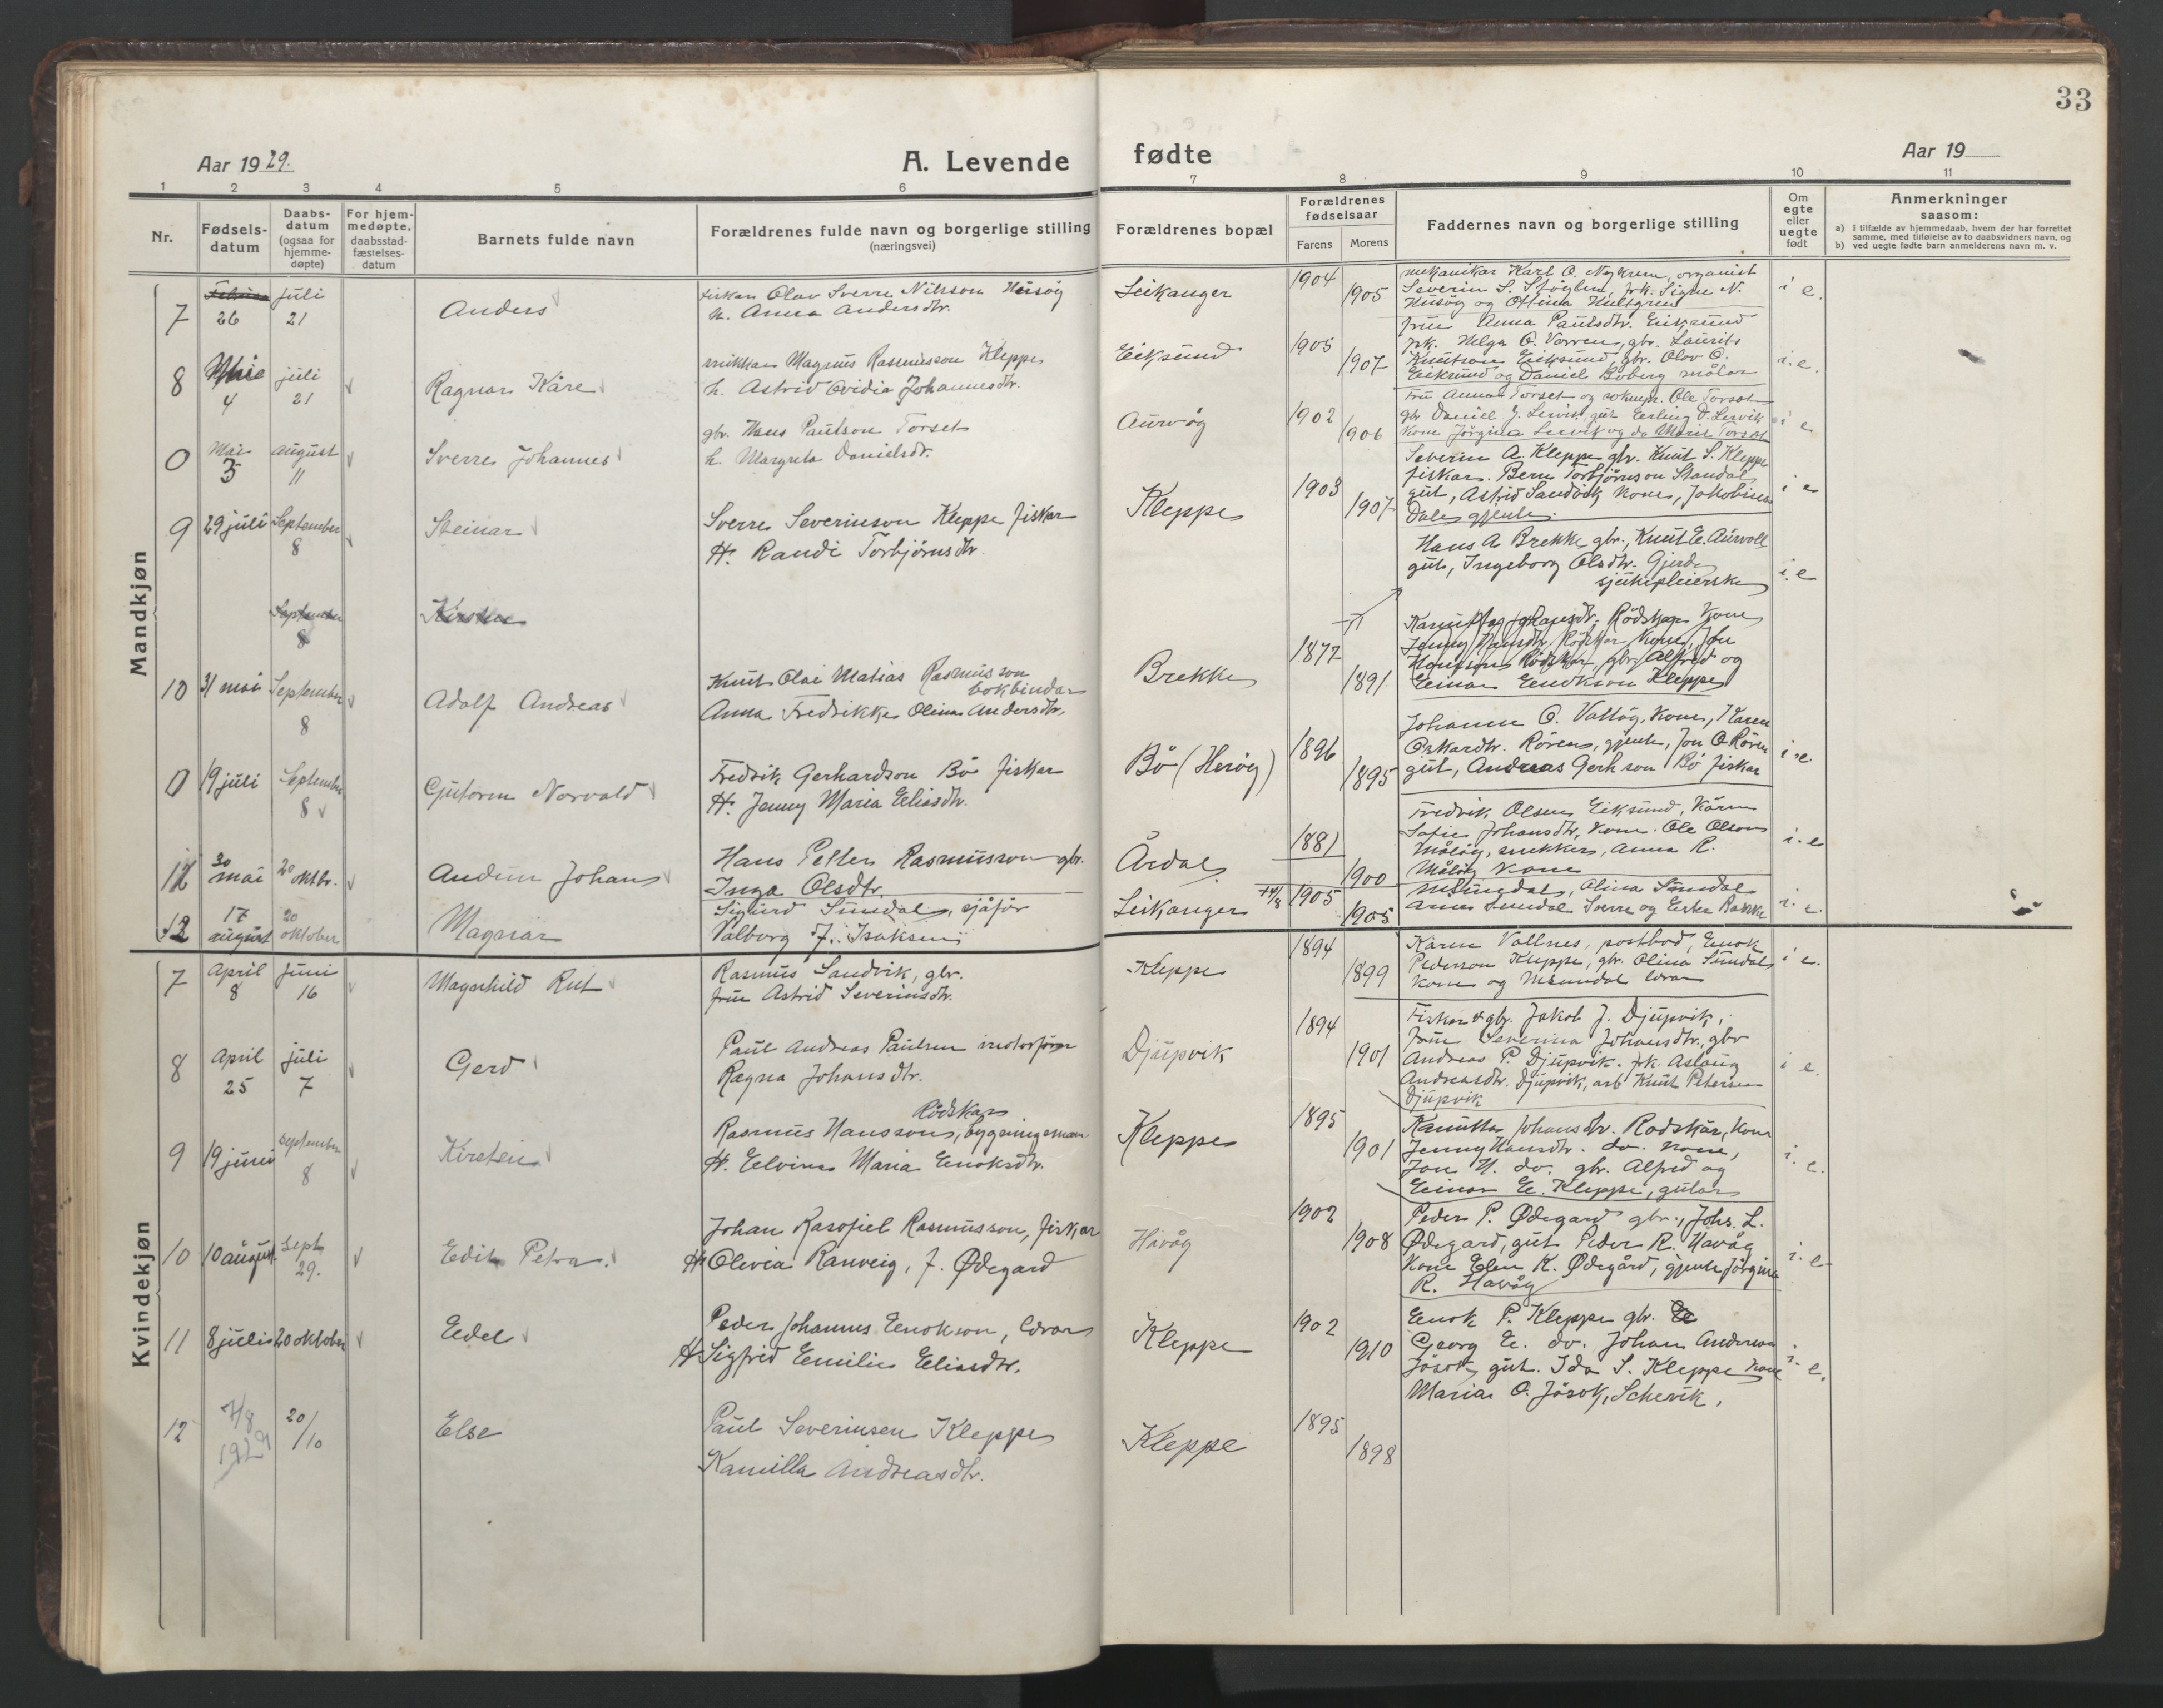 33
Aar 1929.
A. Levende
fødte
Aar 19
1 2 3 4 5 6 7 8 9 10 11
Nr.
Fødsels-
datum
Daabs-
datum
(ogsaa for
hjemme-
døpte)
For hjem-
medøpte,
daabsstad-
fæstelses-
datum
Barnets fulde navn
Forældrenes fulde navn og borgerlige stilling
(næringsvei)
Forældrenes bopæl
Forældrenes
fødselsaar
Farens
Morens
Faddernes navn og borgerlige stilling
Om
egte
eller
uegte
født
Anmerkninger
saasom:
a) i tilfælde av hjemmedaab, hvem der har forrettet
samme, med tilføielse av to daabsvidners navn, og
b) ved uegte fødte barn anmelderens navn m. v.
Mandkjøn
7 26 juli 21 Anders
fiskar Olav Sverre Nilsson Husøy
h. Anna Andersdtr.
Leikanger 1904 1905
mekanikar Karl O. organist
Severin S. Støylen, frk. Signe N.
Husøy og Ottina Hultgren
i e.
8 4 juli 21 Ragnar Kåre
snikkar Magnus Rasmusson Kleppe
h. Astrid Ovidia Johannesdtr.
Eiksund 1905 1907
frue Anna Paulsdtr. Eiksund
frk. Helga O. Vorren, gbr. Laurits
Knutson Eiksund, gbr. Olov O.
Eiksund og Daniel Boberg målar
i. e.
0 Mai 3 august 11 Sverre Johannes
gbr. Hans Paulson Torset
h Margreta Danielsdr.
Aurvåg 1902 1906
Fru Anna Torset og Ole Torset
gbr Daniel J. Lervik gut Erling D. Lervik
Kone Jørgina Lervik og do Marit Torset
i e
9 29 juli September 8 Steinar
Sverre Severinson Kleppe fiskar
H. Randi Torbjørnsdtr.
Kleppe 1903 1907
Severin A. Kleppe gbr. Knut S. Kleppe
fiskar. Bern Torbjørnson Standal
gut, Astrid Sandvik kone, Jakobina
Dale gjente.
i e
September 8 Kirsten
Hans A Brekke gbr., Knut E. Aurvoll
gut, Ingeborg Olsdtr. Gjerde
sjukepleierske
i. e
10 31 mai September 8 Adolf Andreas
Knut Olai Matias Rasmusson
bokbindar
Anna Fredrikke Olina Andersdtr.
Brekke 1877 1891
Kamilla Johansdtr. Rødskar Kone
Jenny Hansdtr. Rødskar Kone, Jon
Hansson Rødskar, gbr. Alfred og
Einar Enokson Kleppe
0 19 juli September 8 Guttorm Norvald
Fredrik Gerhardson Bø fiskar
H. Jenny Maria Eliasdtr.
Bø (Herøy) 1896 1895
Johanne O. Valløy, kone, Karen
Oskardtr. Røren, gjente, Jon O Røren
gut, Andreas Gerhson Bø fiskar
i e.
11 30 mai 20 oktbr. Audun Johan
Hans Petter Rasmusson gbr.
Inga Olsdtr.
Årdal 1881 1900
Fredrik Olsen Eiksund, Karen
Sofie Johansdtr, kone. Ole Olson
Måløy, snekker, Anna R.
Måløy kone
i. e
12 17 august 20 oktober Magnar
Sigurd Sundal, sjåfør
Valborg J. Isaksen
Leikanger 1905 1905
M Sundal, Olina Sundal
Sundal Sverre og Rakke
i. e.
Kvindekjøn
7 April 8 Juni 16 Magnhild Rut
Rasmus Sandvik, gbr.
frue Astrid Severinsdtr.
Kleppe 1894 1899
Karen Vallnes, postbod, Enok
Pederson Kleppe, gbr. Olina Sundal
kone og MSundal lærar
i e.
8 April 25 juli 7 Gerd
Paul Andreas Paulsen motorfører
Ragna Johansdtr.
Djupvik 1894 1901
Fiskar & gbr. Jakob J. Djupvik,
Frue Severina Johansdtr., gbr
Andreas P. Djupvik. frk. Aslaug
Andreasdtr. Djupvik, arb Knut Petersen
Djupvik
i e.
9 19 juni september 8 Kirsten
Rødskar
Rasmus Hansson, bygningsman
H. Elvina Maria Enoksdtr.
Kleppe 1895 1901
Kamilla Johansdtr. Rødskår, kone
Jenny Hansdtr. do. kone,
Jon H. do. gbr. Alfred og
Einar E. Kleppe, gutar
i. e.
10 10 august Sept. 29. Edit Petra.
Johan Kasofiel Rasmusson, fiskar
H Olivia Ranveig, f. Ødegard
Havåg 1902 1908
Peder P. Ødegard gbr., Johs. L.
Ødegard, gut Peder R. Havåg
Kone Elen K. Ødegård, gjente Jørgina
R. Havåg
i. e
11 8 juli 20 oktober Edel
Peder Johannes Enokson, lærar
H Sigfrid Emilie Eliasdtr.
Kleppe 1902 1910
Enok P. Kleppe gbr. E
Georg E. do. Johan Anderson
Jøsok, gut. Ida S. Kleppe kone
Maria O. Jøsok, Schevik,
i. e.
12 7/8 1929 20/10 Else
Paul Severinsen Kleppe
Kamilla Andreasdtr.
Kleppe 1895 1898